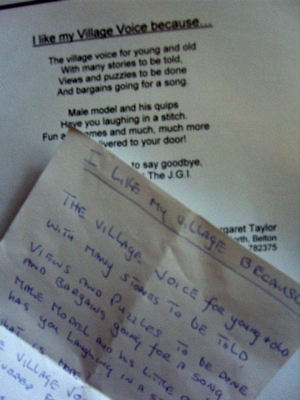 I like my Village Voice because...
The village voice for young and old
With many stories to be told,
Views and puzzles to be done
And bargains going for a song.
Male model and his quips
Have you laughing in a stitch.
Fun a mes and much, much more
livered to your door!
to say goodbye,
The J.G.I.
garet Taylor
orth, Belton
782375
I LIKE MY VILLAGE BECAUSE
THE VILLAGE VOICE for young + old
WITH MANY STORIES TO BE TOLD
VIEWS AND PUZZLES TO BE DONE
AND BARGAINS going for A SONG
MALE MODEL AND HIS LITTLE
HAS YOU LAUGHING IN A
HAT IS MORE
VILLAGE VO